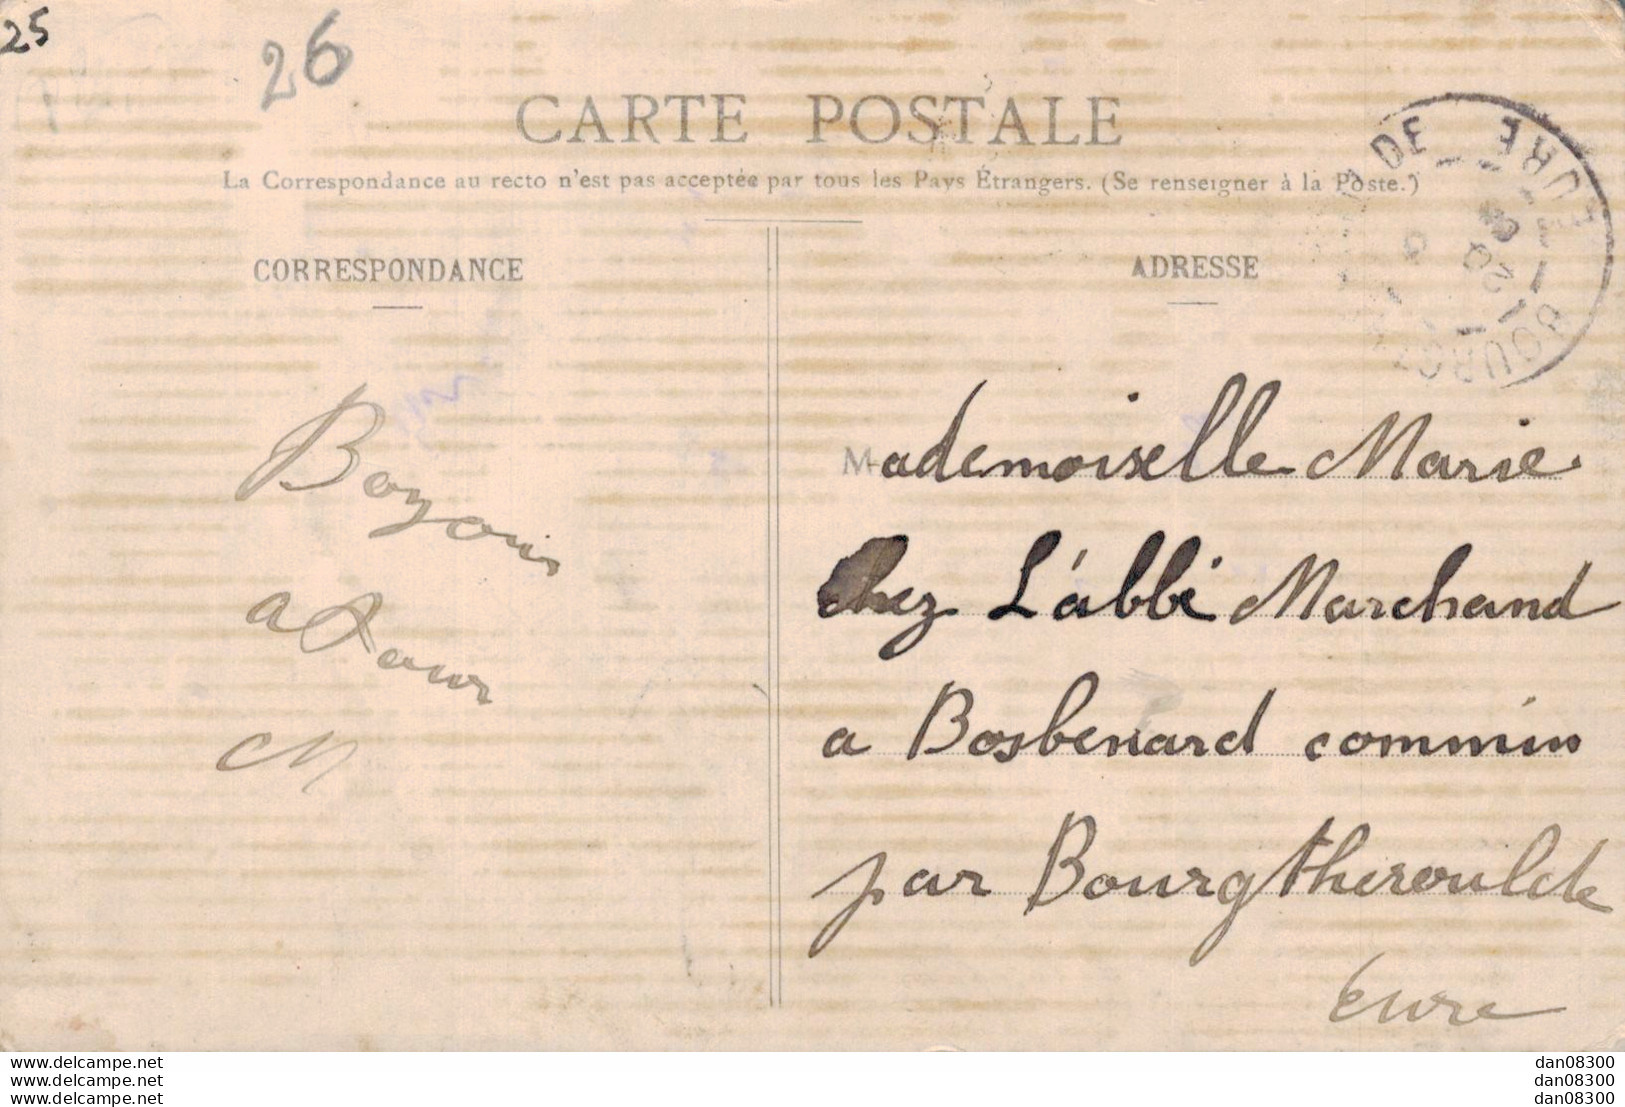 25
26
CARTE POSTALE
La Correspondance au recto n'est pas acceptée par tous les Pays Étrangers. (Se renseigner à la Poste.)
CORRESPONDANCE
ADRESSE
DE
EURE
20
BOURGT
Mademoiselle Marie
chez L'abbé Marchand
a Bosbenard commin
par Bourgtheroulde
Eure
a
M
www.delcampe.net
www.delcampe.net
www.delcampe.net
dan08300
dan08300
dan08300